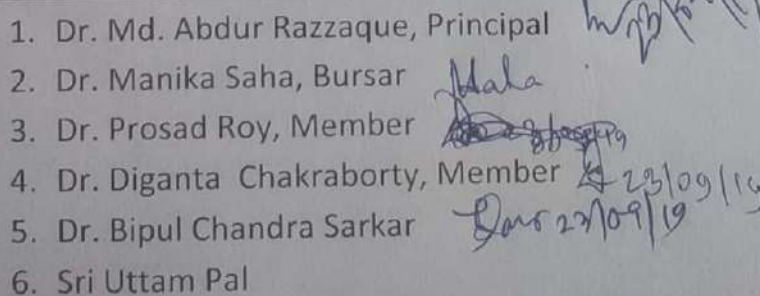 1. Dr. Md. Abdur Razzaque, Principal
2. Dr. Manika Saha, Bursar
3. Dr. Prosad Roy, Member
4. Dr. Diganta Chakraborty, Member 23/09/19
5. Dr. Bipul Chandra Sarkar 23/09/19
6. Sri Uttam Pal